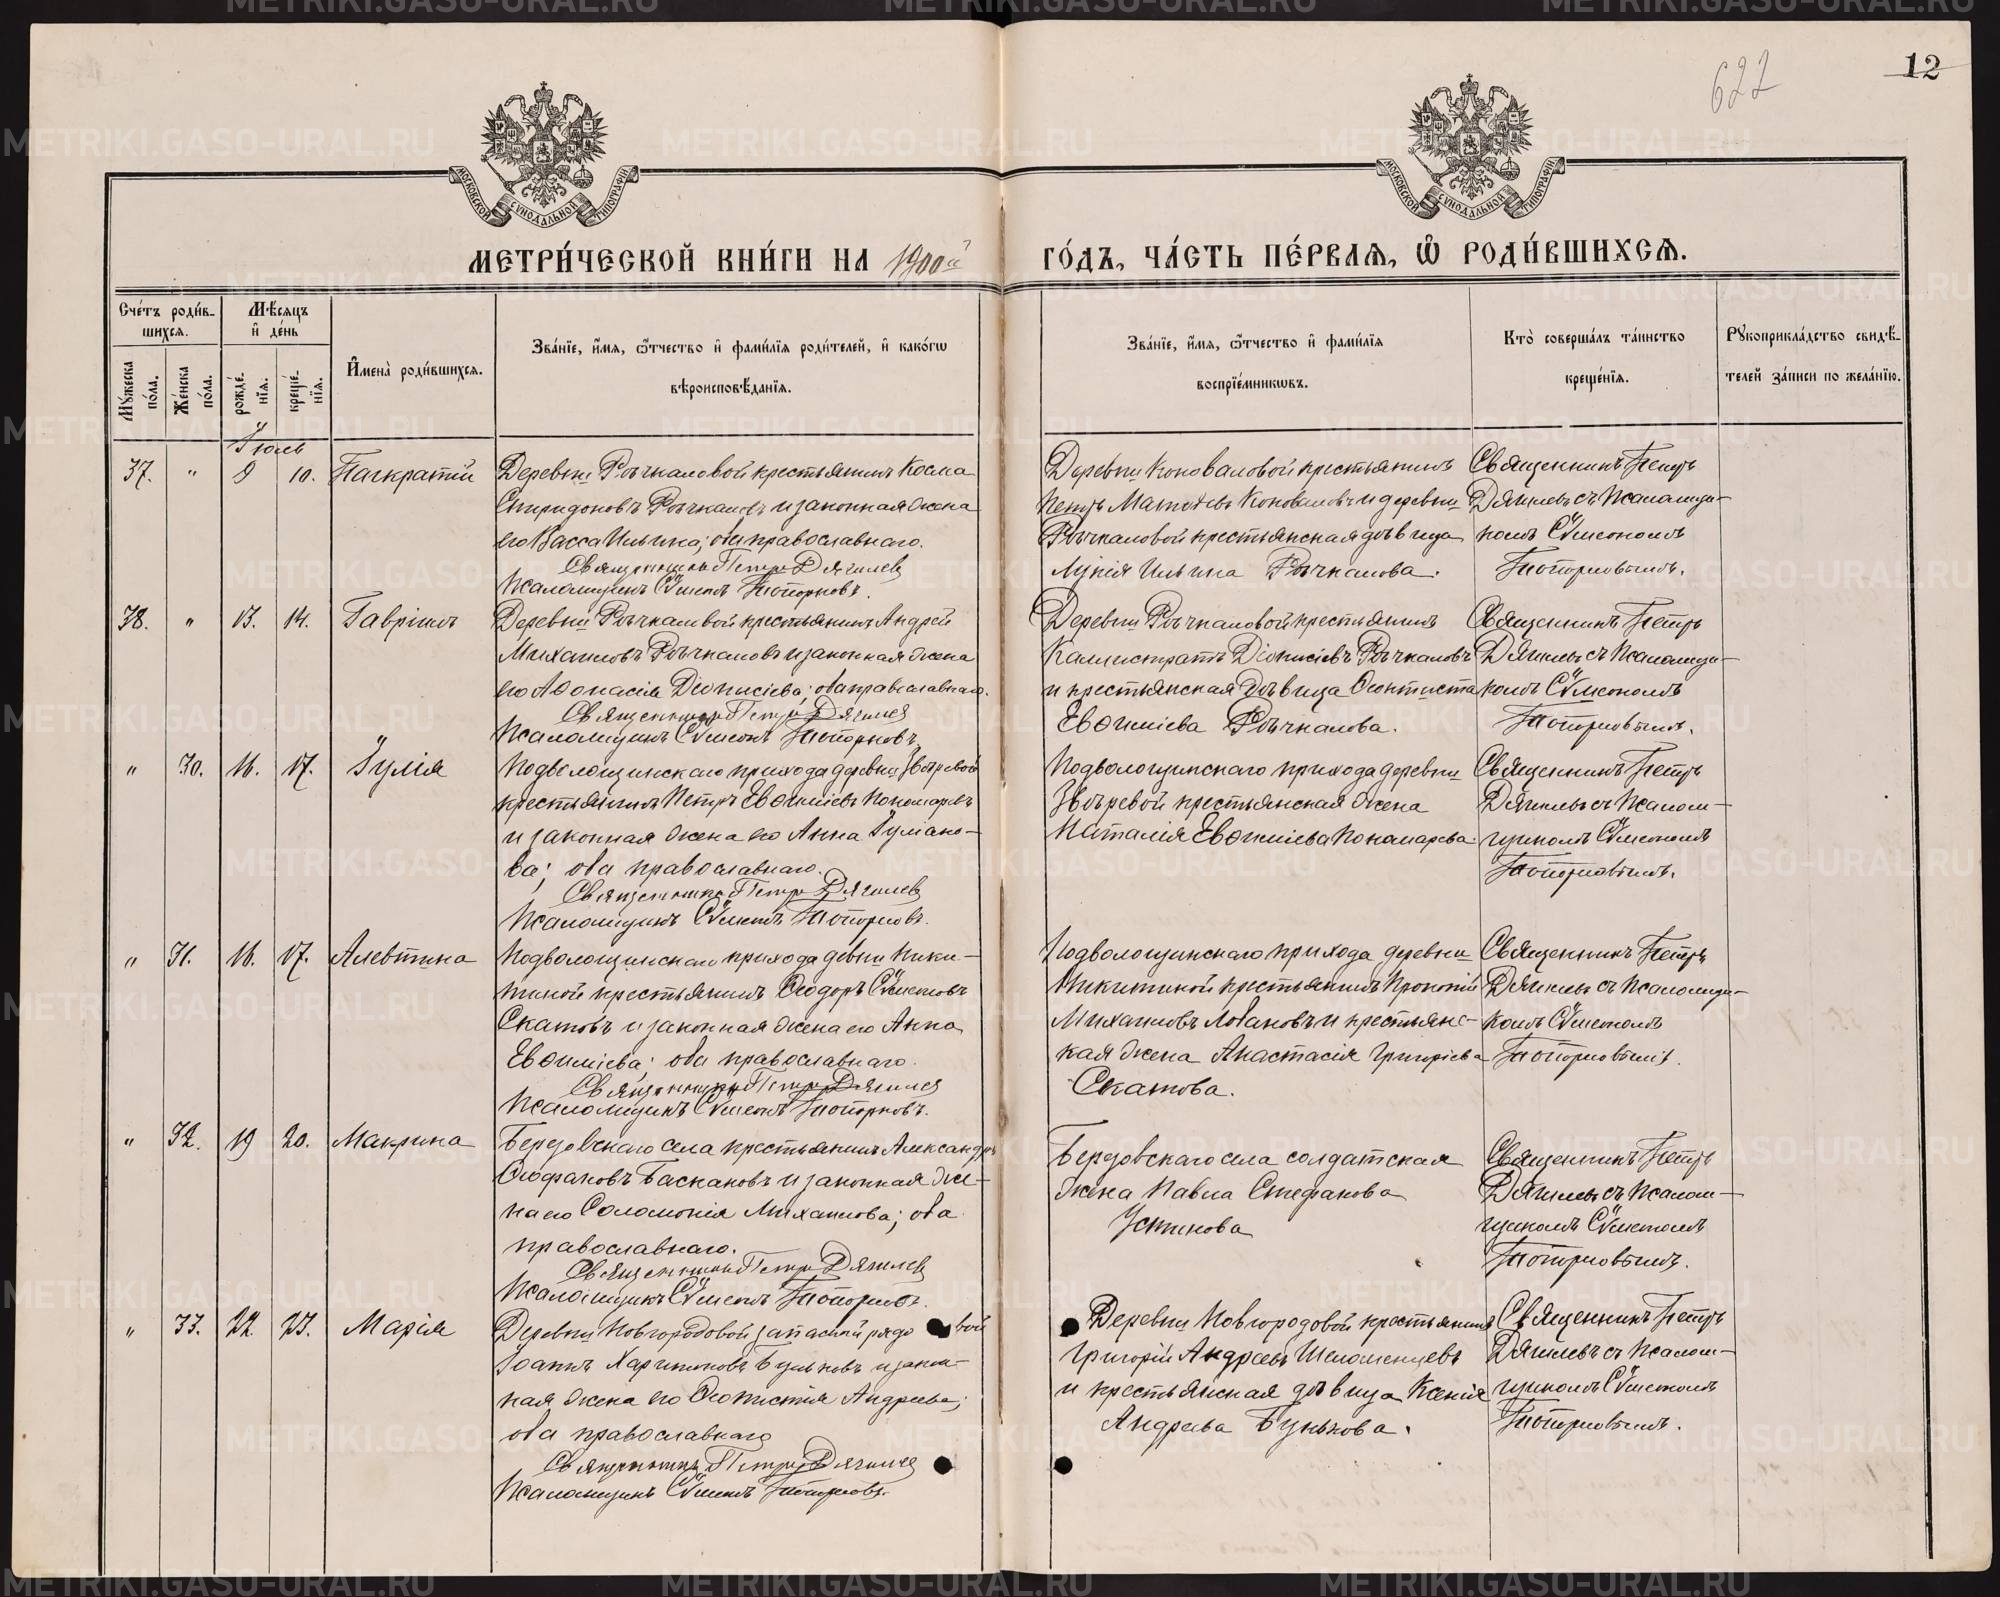 622
12
МОСКОВСКОЙ СѴНОДАЛЬНОЙ ТИПОГРАФІИ
МОСКОВСКОЙ СѴНОДАЛЬНОЙ ТИПОГРАФІИ
МЕТРИ́ЧЕСКОЙ КНИ́ГИ НА 1900й ГО́ДЪ, ЧА́СТЬ ПЕ́РВАѦ, Ѡ РОДИ́ВШИХСѦ.
Сче́тъ роди́в-
шихсѧ.
Мꙋжеска по́ла.
Же́нска по́ла.
Мѣ́сѧцъ
и҆ де́нь
рожде́-
нїѧ.
креще́-
нїѧ.
И҆мена̀ роди́вшихсѧ.
Зва́нїе, и҆́мѧ, ѻ҆́тчество и҆ фами́лїѧ роди́телей, и҆ како́гѡ
вѣроисповѣ́данїѧ.
Зва́нїе, и҆́мѧ, ѻ҆́тчество и҆ фами́лїѧ
воспрїе́мникѡвъ.
Кто̀ соверша́лъ та́инство
креще́нїѧ.
Рꙋкоприкла́дство свидѣ́-
телей за́писи по жела́нїю.
Іюль
37. " 9 10. Панкратій
Деревни Рычкаловой крестьянинъ Косма
Спиридоновъ Рычкаловъ и законная жена
его Васса Ильина; оба православнаго.
Священникъ Петръ Дягилев
Псаломщикъ Сѵмеонъ Топорковъ.
Деревни Коноваловой крестьянинъ
Петръ Матѳѣевъ Коноваловъ и деревни
Рычкаловой крестьянская дѣвица
Лукія Ильина Рычкалова.
Священникъ Петръ
Дягилевъ съ псаломщи-
комъ Сѵмеономъ
Топорковымъ.
38. " 13. 14. Гавріилъ
Деревни Рычкаловой крестьянинъ Андрей
Михаиловъ Рычкаловъ и законная жена
его Аѳанасія Діонисіева; оба православнаго.
Священникъ Петръ Дягилев
Псаломщикъ Сѵмеонъ Топорковъ.
Деревни Рычкаловой крестьянинъ
Каллистратъ Діонисіевъ Рычкаловъ
и крестьянская дѣвица Ѳеоктиста
Евѳиміева Рычкалова.
Священникъ Петръ
Дягилевъ съ псаломщи-
комъ Сѵмеономъ
Топорковымъ.
" 30. 16. 17. Іулія
Подволошинскаго прихода деревни Звѣревой
крестьянинъ Петръ Евѳиміевъ Пономаревъ
и законная жена его Анна Іуліано-
ва; оба православнаго.
Священникъ Петръ Дягилев
Псаломщикъ Сѵмеонъ Топорковъ.
Подволошинскаго прихода деревни
Звѣревой крестьянская жена
Наталія Евѳиміева Пономарева.
Священникъ Петръ
Дягилевъ съ псалом-
щикомъ Сѵмеономъ
Топорковымъ.
" 31. 16. 17. Алевтина
Подволошинскаго прихода девни Ники-
тиной крестьянинъ Ѳеодоръ Сѵмеоновъ
Скатовъ и законная жена его Анна
Евѳиміева; оба православнаго.
Священникъ Петръ Дягилев
Псаломщикъ Сѵмеонъ Топорковъ.
Подволошинскаго прихода деревни
Никитиной крестьянинъ Прокопій
Михаиловъ Лобановъ и крестьянс-
кая жена Анастасія Григоріева
Скатова.
Священникъ Петръ
Дягилевъ съ псаломщи-
комъ Сѵмеономъ
Топорковымъ.
" 32. 19 20. Макрина
Березовскаго села крестьянинъ Александръ
Стефановъ Баскаковъ и законная же-
на его Соломонія Михаилова; оба
православнаго.
Священникъ Петръ Дягилев
Псаломщикъ Сѵмеонъ Топорковъ.
Березовскаго села солдатская
жена Павла Стефанова
Устинова
Священникъ Петръ
Дягилевъ съ псалом-
щикомъ Сѵмеономъ
Топорковымъ.
" 33. 22. 23. Марія
Деревни Новгородовой запасный рядовой
Іоаннъ Харитоновъ Буньковъ и закон-
ная жена его Ѳеоктистія Андреева;
оба православнаго
Священникъ Петръ Дягилев
Псаломщикъ Сѵмеонъ Топорковъ.
Деревни Новгородовой крестьянинъ
Григорій Андреевъ Шеломенцевъ
и крестьянская дѣвица Ксенія
Андреева Бунькова.
Священникъ Петръ
Дягилевъ съ псалом-
щикомъ Сѵмеономъ
Топорковымъ.
METRIKI.GASO-URAL.RU